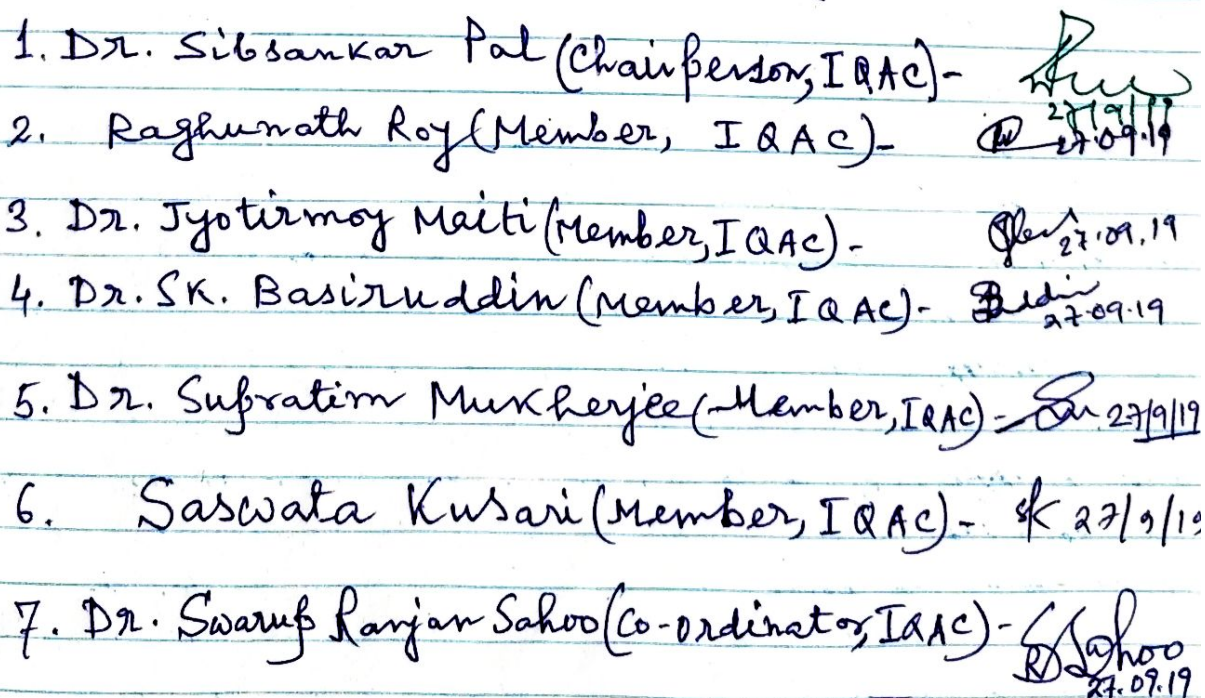 1. Dr. Sibsankar Pal (Chairperson, IQAC)-
27/9/19
2. Raghunath Roy (Member, IQAC)- 27.09.19
3. Dr. Jyotirmoy Maiti (Member, IQAC)- 27.09.19
4. Dr. SK. Basiruddin (Member, IQAC)- 27.09.19
5. Dr. Supratim Mukherjee (Member, IQAC)- 27/9/19
6. Saswata Kusari (Member, IQAC)- SK 27/9/19
7. Dr. Swarup Ranjan Sahoo (Co-ordinator, IQAC)- SRSahoo
27.09.19